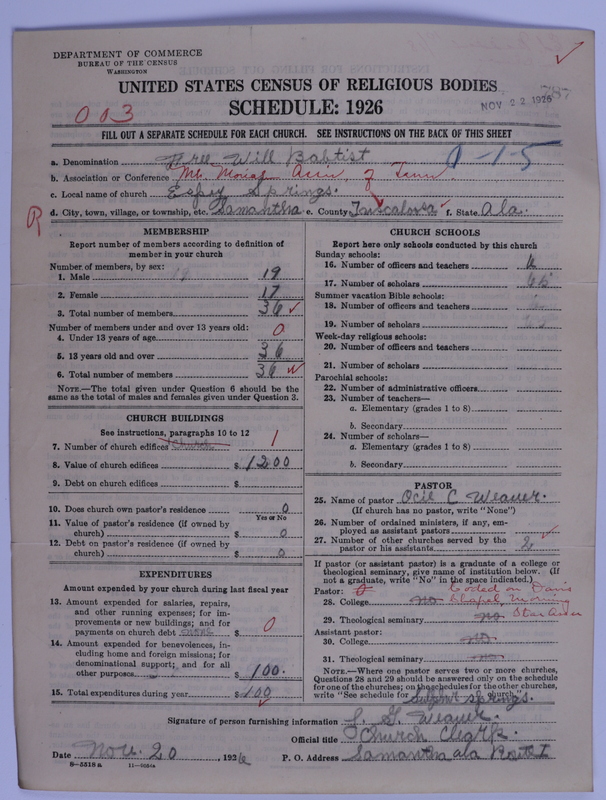 DEPARTMENT OF COMMERCE
BUREAU OF THE CENSUS
WASHINGTON
UNITED STATES CENSUS OF RELIGIOUS BODIES
SCHEDULE: 1926
NOV 22 1926
003
FILL OUT A SEPARATE SCHEDULE FOR EACH CHURCH. SEE INSTRUCTIONS ON THE BACK OF THIS SHEET
a. Denomination Free Will Baptist
0-1-5
b. Association or Conference Mt. Moriah Assn. of
c. Local name of church Espy Springs.
d. City, town, village, or township, etc. Samantha e. County Tuscaloosa f. State Ala.
R
MEMBERSHIP
Report number of members according to definition of
member in your church
Number of members, by sex:
1. Male 19
2. Female 17
3. Total number of members 36
Number of members under and over 13 years old:
4. Under 13 years of age 0
5. 13 years old and over 36
6. Total number of members 36
NOTE.—The total given under Question 6 should be
same as the total of males and females given under Question 3.
CHURCH BUILDINGS
See instructions, paragraphs 10 to 12
7. Number of church edifices Church 1
8. Value of church edifices $ 1200
9. Debt on church edifices $
10. Does church own pastor's residence 0
Yes or No
11. Value of pastor's residence (if owned by
church) $ 0
12. Debt on pastor's residence (if owned by
church) $ 0
EXPENDITURES
Amount expended by church during last fiscal year
13. Amount expended for salaries, repairs,
and other running expenses; for im-
provements or new buildings; and for
payments on church debt none $ 0
14. Amount expended for benevolences, in-
cluding home and foreign missions; for
denominational support; and for all
other purposes $ 100.
15. Total expenditures during year $ 100
CHURCH SCHOOLS
Report here only schools conducted by this church
Sunday schools:
16. Number of officers and teachers 6
17. Number of scholars
Summer vacation Bible schools:
18. Number of officers and teachers
19. Number of scholars
Week-day religious schools:
20. Number of officers and teachers
21. Number of scholars
Parochial schools:
22. Number of administrative officers
23. Number of teachers—
a. Elementary (grades 1 to 8)
b. Secondary
24. Number of scholars—
a. Elementary (grades 1 to 8)
b. Secondary
PASTOR
25. Name of pastor Ocie C Weaver.
(If church has no pastor, write "None")
26. Number of ordained ministers, if any, em-
ployed as assistant pastors
27. Number of other churches served by the
pastor or his assistants 2
If pastor (or assistant pastor) is a graduate of a college or
theological seminary, give name of institution below. (If
not a graduate, write "No" in the space indicated.)
Pastor: Coded on Davis
28. College no Chapel, Morning
29. Theological seminary no Star Assn
Assistant pastor:
30. College no
31. Theological seminary no
NOTE.—Where one pastor serves two or more churches,
Questions 28 and 29 should be answered only on the schedule
for one of the churches; on the schedules for the other churches,
write "See schedule for Sulphur Springs. church"
Signature of person furnishing information J. G. Weaver.
Official title Church Clerk
Date Nov. 20, 1926 P. O. Address Samantha Ala Route 1
8-5518 a 11-9054a